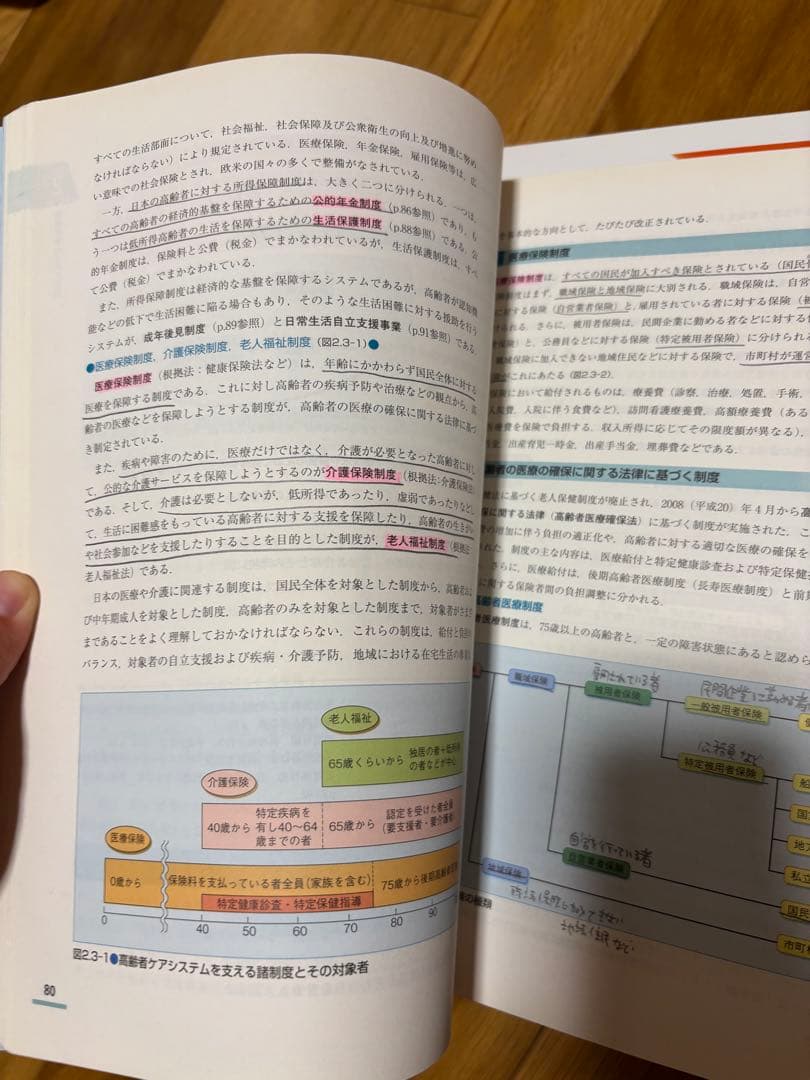 すべての生活部面について，社会福祉，社会保障及び公衆衛生の向上及び増進に努め
なければならない）により規定されている．医療保険，年金保険，雇用保険等は，広
い意味での社会保険とされ，欧米の国々の多くで整備がなされている．
一方，日本の高齢者に対する所得保障制度は，大きく二つに分けられる．一つは，
すべての高齢者の経済的基盤を保障するための公的年金制度（p.86参照）であり，も
う一つは低所得高齢者の生活を保障するための生活保護制度（p.88参照）である．公
的年金制度は，保険料と公費（税金）でまかなわれているが，生活保護制度は，すべ
て公費（税金）でまかなわれている．
また，所得保障制度は経済的な基盤を保障するシステムであるが，高齢者が認知機
能などの低下で生活困難に陥る場合もあり，そのような生活困難に対する援助を行う
システムが，成年後見制度（p.89参照）と日常生活自立支援事業（p.91参照）である．
●医療保険制度，介護保険制度，老人福祉制度（図2.3-1）●
医療保険制度（根拠法：健康保険法など）は，年齢にかかわらず国民全体に対する
医療を保障する制度である．これに対し高齢者の疾病予防や治療などの観点から，高
齢者の医療などを保障しようとする制度が，高齢者の医療の確保に関する法律に基づ
き制定されている．
また，疾病や障害のために，医療だけではなく，介護が必要となった高齢者に対し
て，公的な介護サービスを保障しようとするのが介護保険制度（根拠法：介護保険法）
である．そして，介護は必要としないが，低所得であったり，虚弱であったりなどし
て，生活に困難感をもっている高齢者に対する支援を保障したり，高齢者の生きがい
や社会参加などを支援したりすることを目的とした制度が，老人福祉制度（根拠法：
老人福祉法）である．
日本の医療や介護に関連する制度は，国民全体を対象とした制度から，高齢者およ
び中年期成人を対象とした制度，高齢者のみを対象とした制度まで，対象者がさまざ
まであることをよく理解しておかなければならない．これらの制度は，給付と負担の
バランス，対象者の自立支援および疾病・介護予防，地域における在宅生活の
老人福祉
65歳くらいから
独居の者＋低所得
の者などが中心
介護保険
40歳から
特定疾病を
有し40〜64
歳までの者
65歳から
認定を受けた者全員
（要支援者・要介護者）
医療保険
0歳から
保険料を支払っている者全員（家族を含む）
75歳から後期高齢者医
特定健康診査・特定保健指導
0 40 50 60 70 80 90
図2.3-1●高齢者ケアシステムを支える諸制度とその対象者
80
基本的な方向として，たびたび改正されている．
医療保険制度
療保険制度は，すべての国民が加入すべき保険とされている（国民
制度はまず，職域保険と地域保険に大別される．職域保険は，自営
に対する保険（自営業者保険）と，雇用されている者に対する保険（被
けられる．さらに，被用者保険は，民間企業に勤める者などに対する
険）と，公務員などに対する保険（特定被用者保険）に分けられる
職域保険に加入できない地域住民などに対する保険で，市町村が運営
がこれにあたる（図2.3-2）．
保険において給付されるものは，療養費（診察，治療，処置，手術，
入院費，入院に伴う食費など），訪問看護療養費，高額療養費（ある
医療費を保険で負担する．収入所得に応じてその限度額が異なる），
金，出産育児一時金，出産手当金，埋葬費などである．
齢者の医療の確保に関する法律に基づく制度
健法に基づく老人保健制度が廃止され，2008（平成20）年4月から高
保に関する法律（高齢者医療確保法）に基づく制度が実施された．こ
の増加に伴う負担の適正化や，高齢者に対する適切な医療の確保を
れた．制度の主な内容は，医療給付と特定健康診査および特定保健
さらに，医療給付は，後期高齢者医療制度（長寿医療制度）と前期
に関する保険者間の負担調整に分かれる．
高齢者医療制度
者医療制度は，75歳以上の高齢者と，一定の障害状態にあると認めら
職域保険
雇用されている者
被用者保険
民間企業に勤める者
一般被用者保険
公務員など
特定被用者保険
船
国
地方
私立
自営を行っている者
自営業者保険
国民
地域保険
職域保険に加入できない
地域住民など
市町村
険の種類